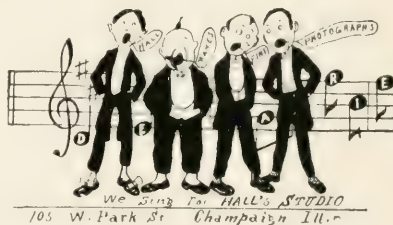 HALL
FINE
PHOTOGRAPHS
D E A R I E
We Sing For HALL'S STUDIO
105 W. Park St. Champaign Ill.